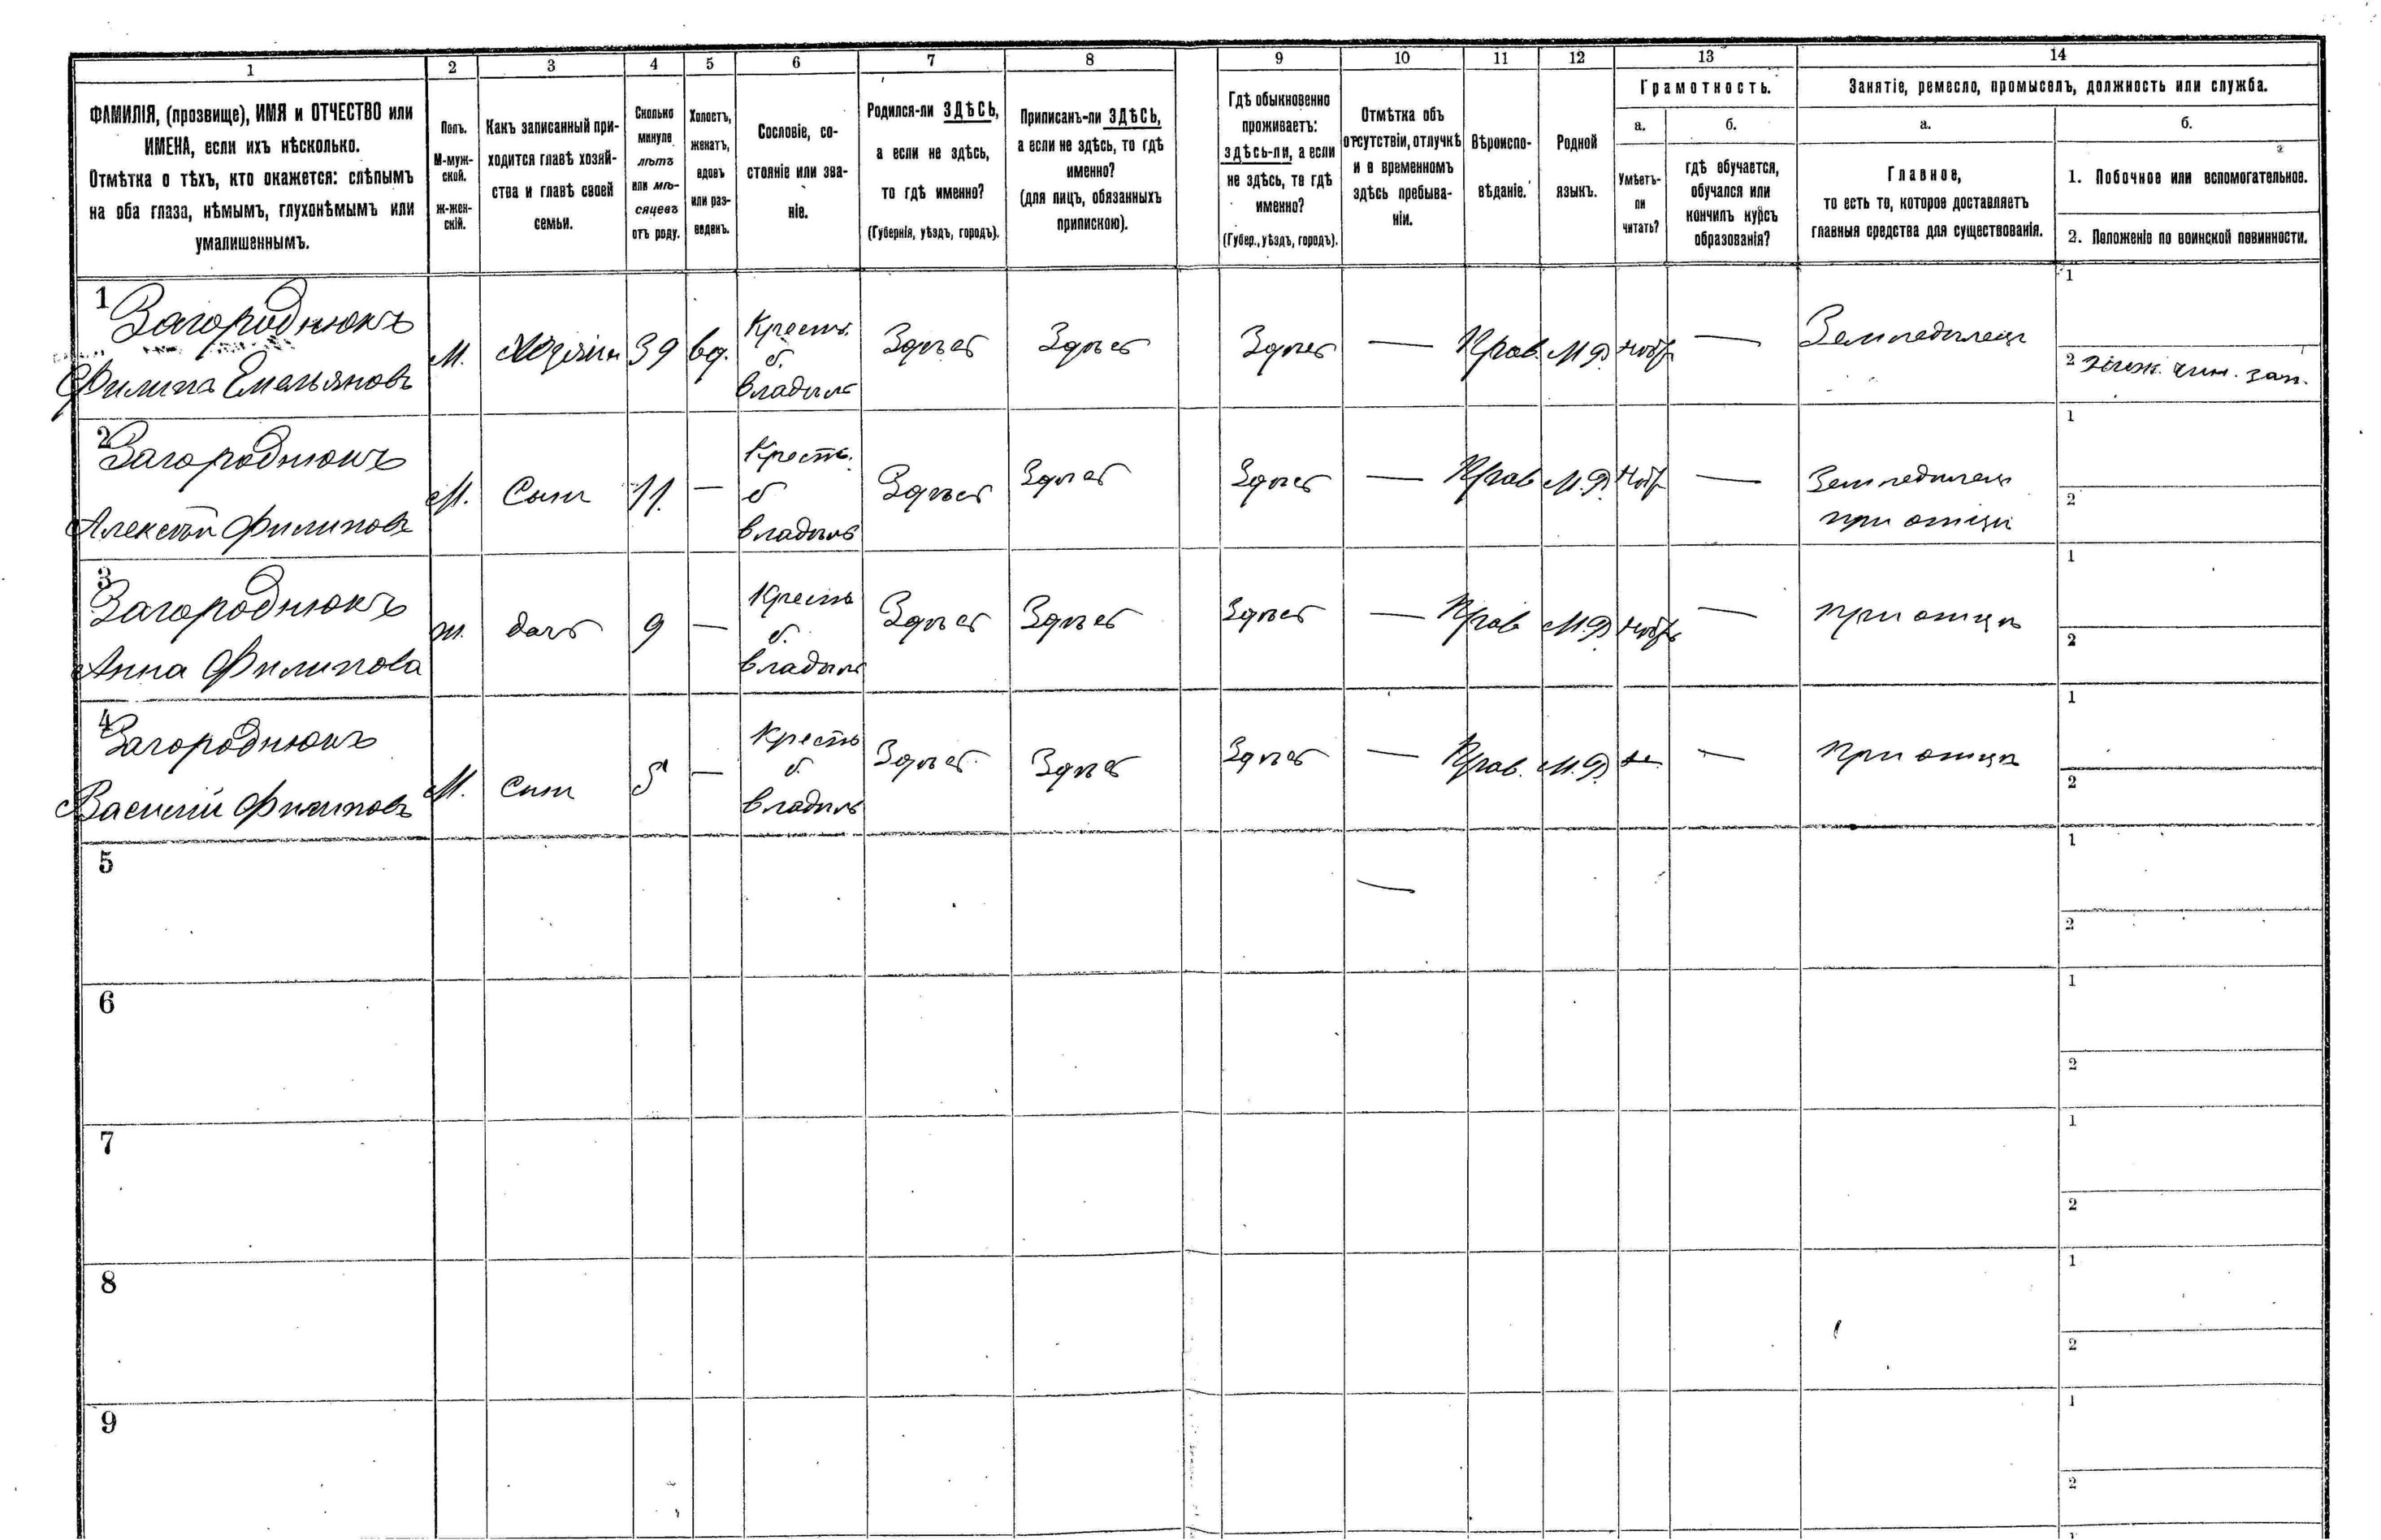 1 2 3 4 5 6 7 8 9 10 11 12 13 14
ФАМИЛІЯ, (прозвище), ИМЯ и ОТЧЕСТВО или
ИМЕНА, если ихъ нѣсколько.
Отмѣтка о тѣхъ, кто окажется: слѣпымъ
на оба глаза, нѣмымъ, глухонѣмымъ или
умалишеннымъ.
Полъ.
М-муж-
ской.
Ж-жен-
скій.
Какъ записанный при-
ходится главѣ хозяй-
ства и главѣ своей
семьи.
Сколько
минуло
лѣтъ
или мѣ-
сяцевъ
отъ роду.
Холостъ,
женатъ,
вдовъ
или раз-
веденъ.
Сословіе, со-
стояніе или зва-
ніе.
Родился-ли ЗДѢСЬ,
а если не здѣсь,
то гдѣ именно?
(Губернія, уѣздъ, городъ).
Приписанъ-ли ЗДѢСЬ,
а если не здѣсь, то гдѣ
именно?
(для лицъ, обязанныхъ
припискою).
Гдѣ обыкновенно
проживаетъ:
здѣсь-ли, а если
не здѣсь, то гдѣ
именно?
(Губер., уѣздъ, городъ).
Отмѣтка объ
отсутствіи, отлучкѣ
и о временномъ
здѣсь пребыва-
ніи.
Вѣроиспо-
вѣданіе.
Родной
языкъ.
Грамотность.
а.
Умѣетъ-
ли
читать?
б.
гдѣ обучается,
обучался или
кончилъ курсъ
образованія?
Занятіе, ремесло, промыселъ, должность или служба.
а.
Главное,
то есть то, которое доставляетъ
главныя средства для существованія.
б.
1. Побочное или вспомогательное.
2. Положеніе по воинской повинности.
1
Загороднюкъ
Филипъ Емельяновъ
М.
Хозяин
39
вд.
Крестъ.
б.
владѣль
Здѣсь
Здѣсь
Здѣсь
—
Прав.
М.Р.
—
Земледѣлец
1
2 Ниж. чин. зап.
2
Загороднюкъ
Алексѣй Филиповъ
М.
Сын
11.
—
Кресть.
б
владѣль
Здѣсь
Здѣсь
Здѣсь
—
Прав
М.Р.
—
Земледѣлец
при отцѣ
1
2
3
Загороднюкъ
Анна Филипова
ж.
дочь
9
—
Кресть
б.
владѣль
Здѣсь
Здѣсь
Здѣсь
—
Прав
М.Р.
—
при отцѣ
1
2
4
Загороднюкъ
Василій Филиповъ
М.
Сын
5
—
Кресть
б.
владѣль
Здѣсь
Здѣсь
Здѣсь
—
Прав.
М.Р.
—
при отцѣ
1
2
5
—
1
2
6
1
2
7
1
2
8
1
2
9
1
2